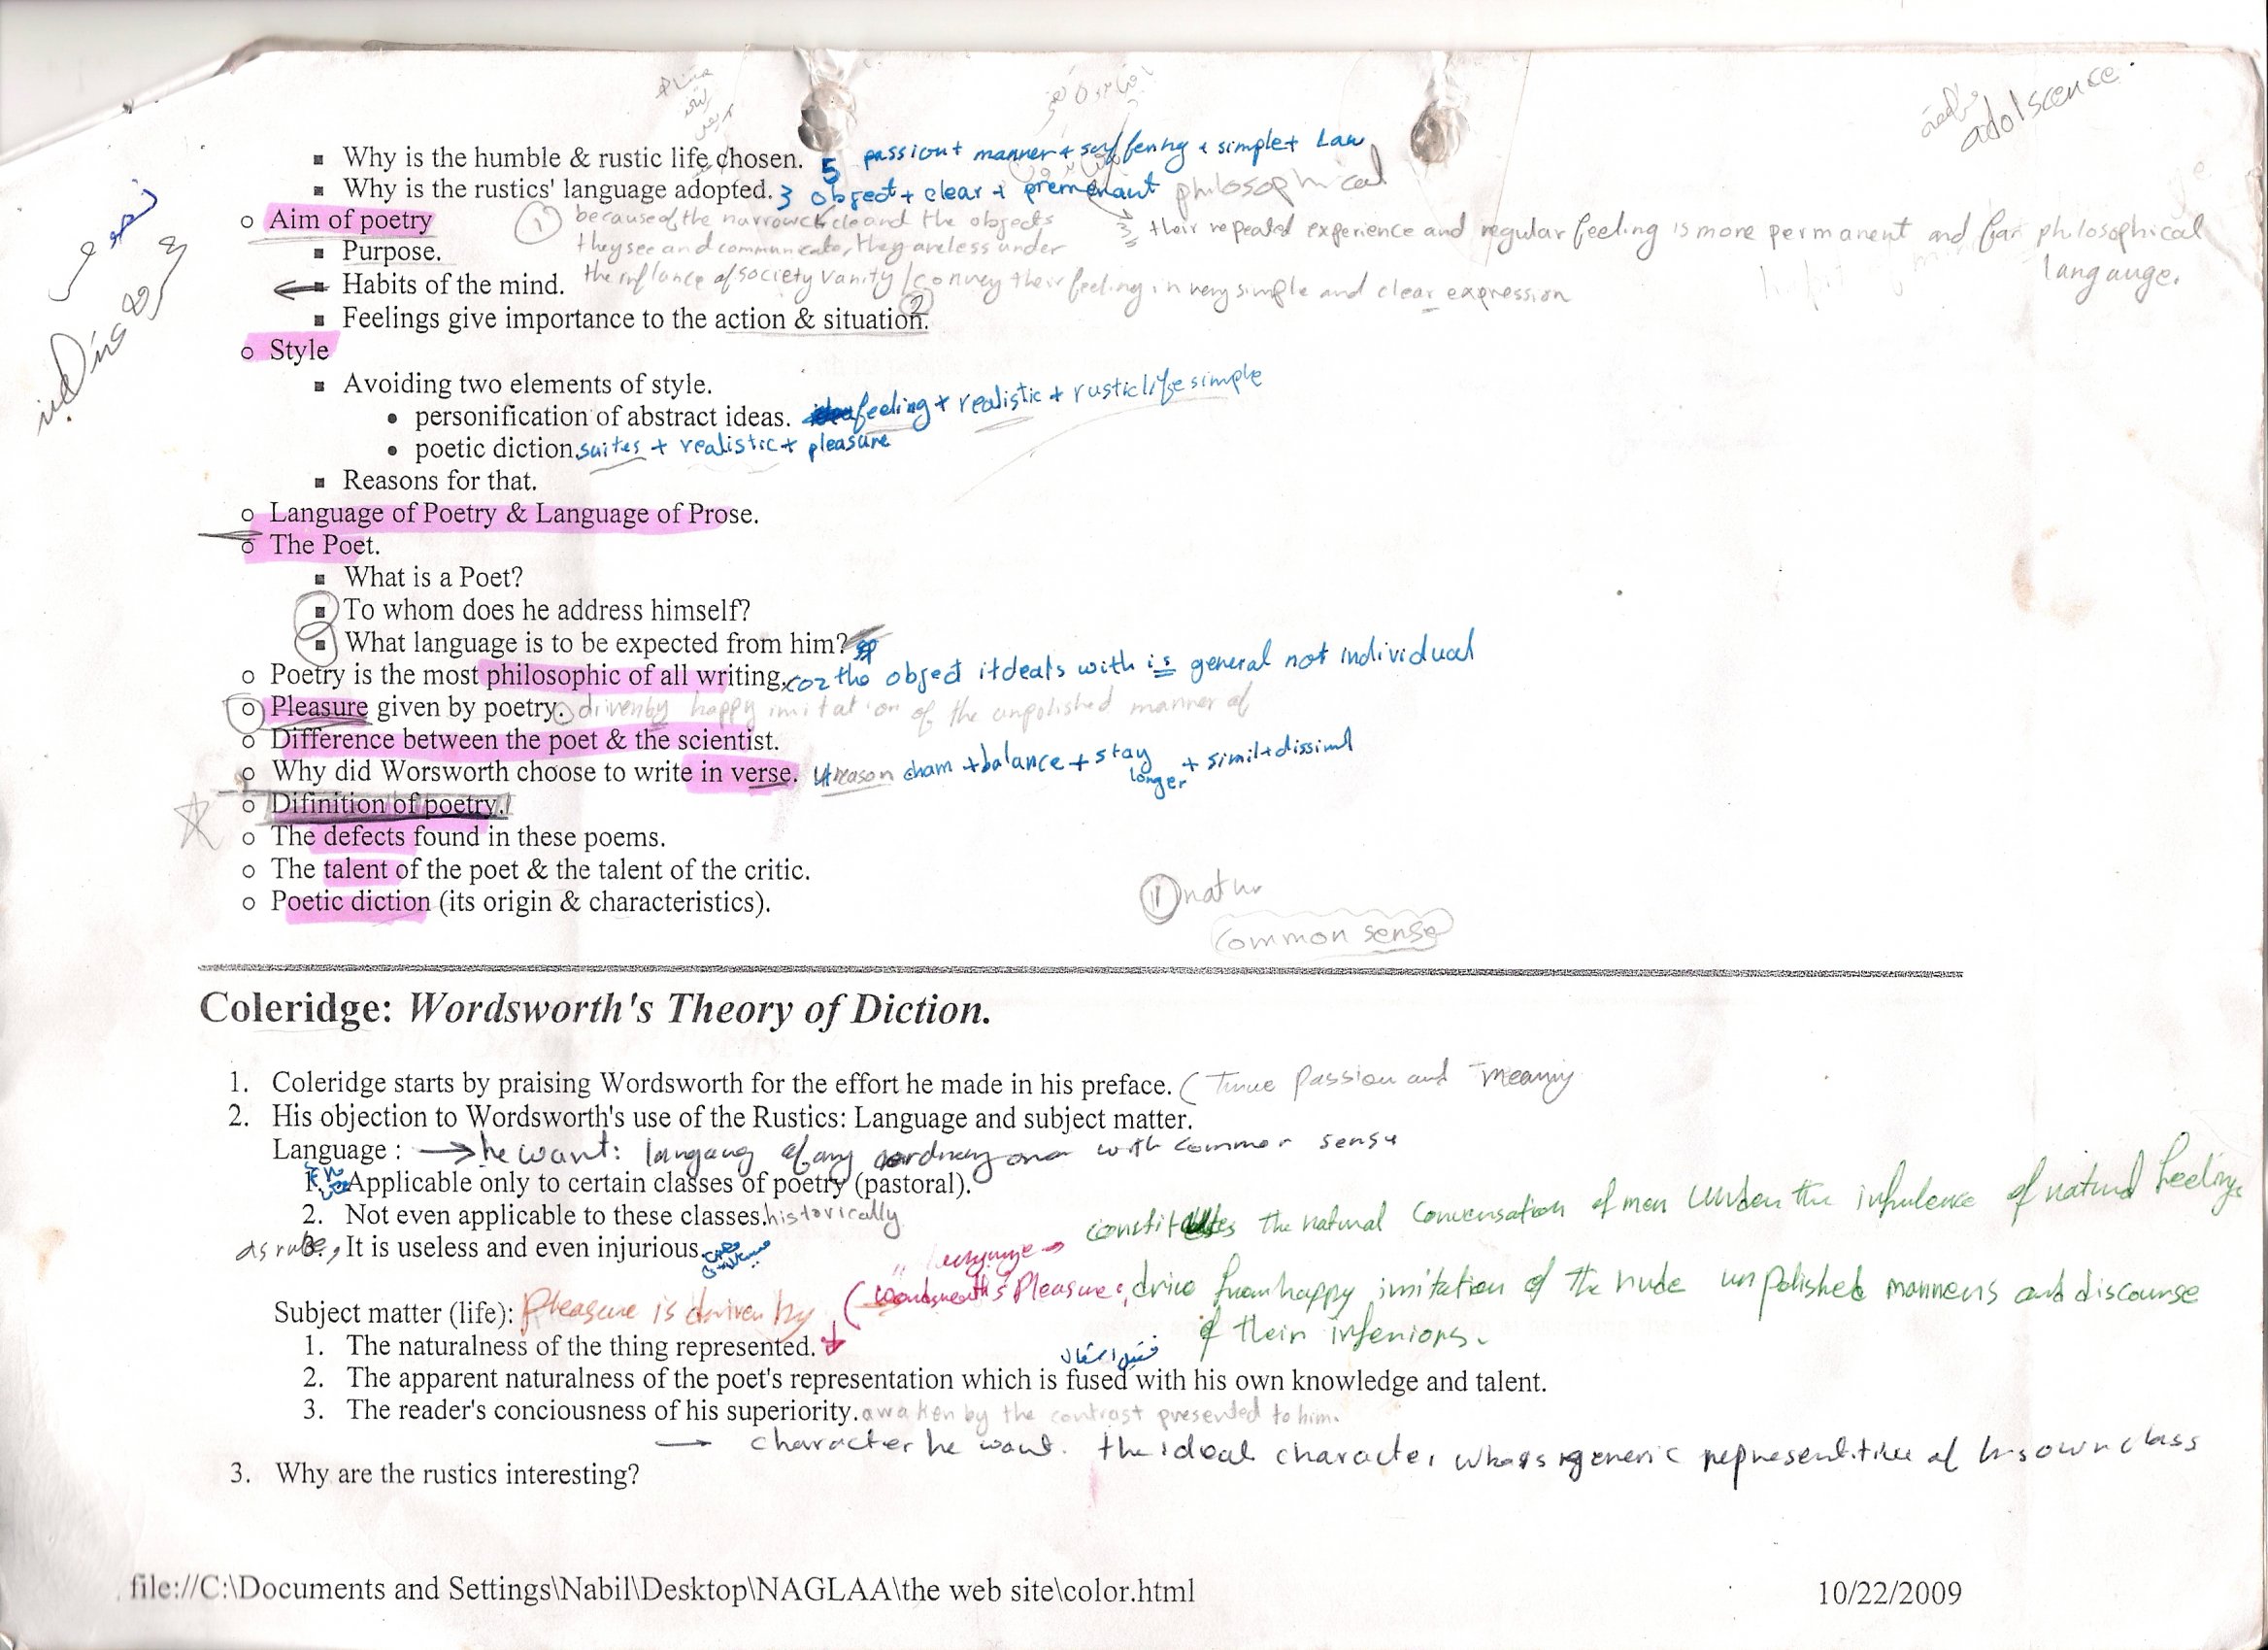 adolscence
▪ Why is the humble & rustic life chosen. 5 passion + manner + suffering + simple + Law
▪ Why is the rustics' language adopted. 3 object + clear + premenant philosophical
o Aim of poetry ① because of the narrow circle and the objects
3 their repeated experience and regular feeling is more permanent and far philosophical
langauge.
▪ Purpose. they see and communicate, they are less under
▪ Habits of the mind. the influance of society vanity / convey their feeling in very simple and clear expression
▪ Feelings give importance to the action & situation. ②
o Style
▪ Avoiding two elements of style.
• personification of abstract ideas. feeling + realistic + rustic life simple
• poetic diction suites + realistic + pleasure
▪ Reasons for that.
o Language of Poetry & Language of Prose.
o The Poet.
▪ What is a Poet?
▪ To whom does he address himself?
▪ What language is to be expected from him?
o Poetry is the most philosophic of all writing. coz the object it deals with is general not individual
o Pleasure given by poetry. driven by happy imitation of the unpolished manner of
o Difference between the poet & the scientist.
o Why did Worsworth choose to write in verse. 4 reason charm + balance + stay longer + simil + dissiml
o Difinition of poetry.
o The defects found in these poems.
o The talent of the poet & the talent of the critic.
o Poetic diction (its origin & characteristics).
① natur
common sense
Coleridge: Wordsworth's Theory of Diction.
1. Coleridge starts by praising Wordsworth for the effort he made in his preface. ( True Passion and meaning
2. His objection to Wordsworth's use of the Rustics: Language and subject matter.
Language : → he want: langang of any ordinary one with common sense
1. Applicable only to certain classes of poetry (pastoral).
2. Not even applicable to these classes. historically
As rule, It is useless and even injurious.
language → constitutes the natural Conversation of men under the infulence of natural feelings
Subject matter (life): Pleasure is driven by (Wordsworth's Pleasure: drive from happy imitation of the rude unpolished manners and discourse
of their inferiors.
1. The naturalness of the thing represented.
2. The apparent naturalness of the poet's representation which is fused with his own knowledge and talent.
3. The reader's conciousness of his superiority. awaken by the contrast presented to him.
→ character he want. the ideal character who is generic representitive of his own class
3. Why are the rustics interesting?
file://C:\Documents and Settings\Nabil\Desktop\NAGLAA\the web site\color.html
10/22/2009